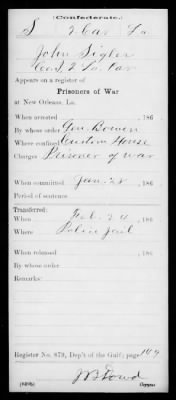 (Confederate.)
S 2 Cav La
John Sigler
Co. I, 2 La. Cav
Appears on a register of
Prisoners of War
at New Orleans, La.
When arrested , 186
By whose order Gen. Bowen
Where confined Custom House
Charges Prisoner of war
When committed Jan. 28 , 186
Period of sentence
Transferred:
When Feb. 24 , 186
Where Police Jail
When released , 186
By whose order
Remarks:
Register No. 879, Dep't of the Gulf; page 149
Copyist.